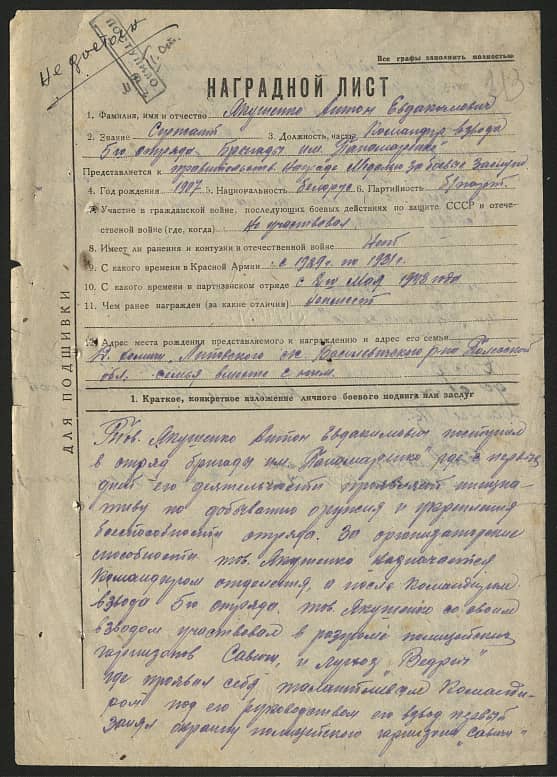 Не
ПОСТУПИЛО
Все графы заполнить полностью
313
НАГРАДНОЙ ЛИСТ
1. Фамилия, имя и отчество Якушенко Антон Евдакимович
2. Звание Сержант 3. Должность, часть Командир взвода
5го отряда Бригады им. Панамаренко
Представляется к правительств. Награде Медали За боевые Заслуги
4. Год рождения 1907 5. Национальность Белорус 6. Партийность б/парт.
7. Участие в гражданской войне, последующих боевых действиях по защите СССР и отече-
ственной войне (где, когда) Не участвовал
8. Имеет ли ранения и контузии в отечественной войне Нет
9. С какого времени в Красной Армии с 1929г по 1931г.
10. С какого времени в партизанском отряде с Мая года
11. Чем ранее награжден (за какие отличия)
12. Адрес места рождения представляемого к награждению и адрес его семьи
с/с Василевичского р-на Полесской
обл. семья вместе с ним.
ДЛЯ ПОДШИВКИ
1. Краткое, конкретное изложение личного боевого подвига или заслуг
Тов. Якушенко Антон Евдакимович поступил
в отряд бригады им. Панамаренко" где с первых
дней его деятельности проявляет инициа-
тиву по добыванию оружия и укрепления
боеспособности отряда. За организаторские
способности тов. Якушенко назначается
Командиром отделения, а после Командиром
взвода 5го отряда. тов. Якушенко со своим
взводом участвовал в разгроме полицейских
гарнизонов и "Ведрич"
где проявил себя талантливым Команди-
ром под его руководством его взвод первый
занял окраину полицейского гарнизона